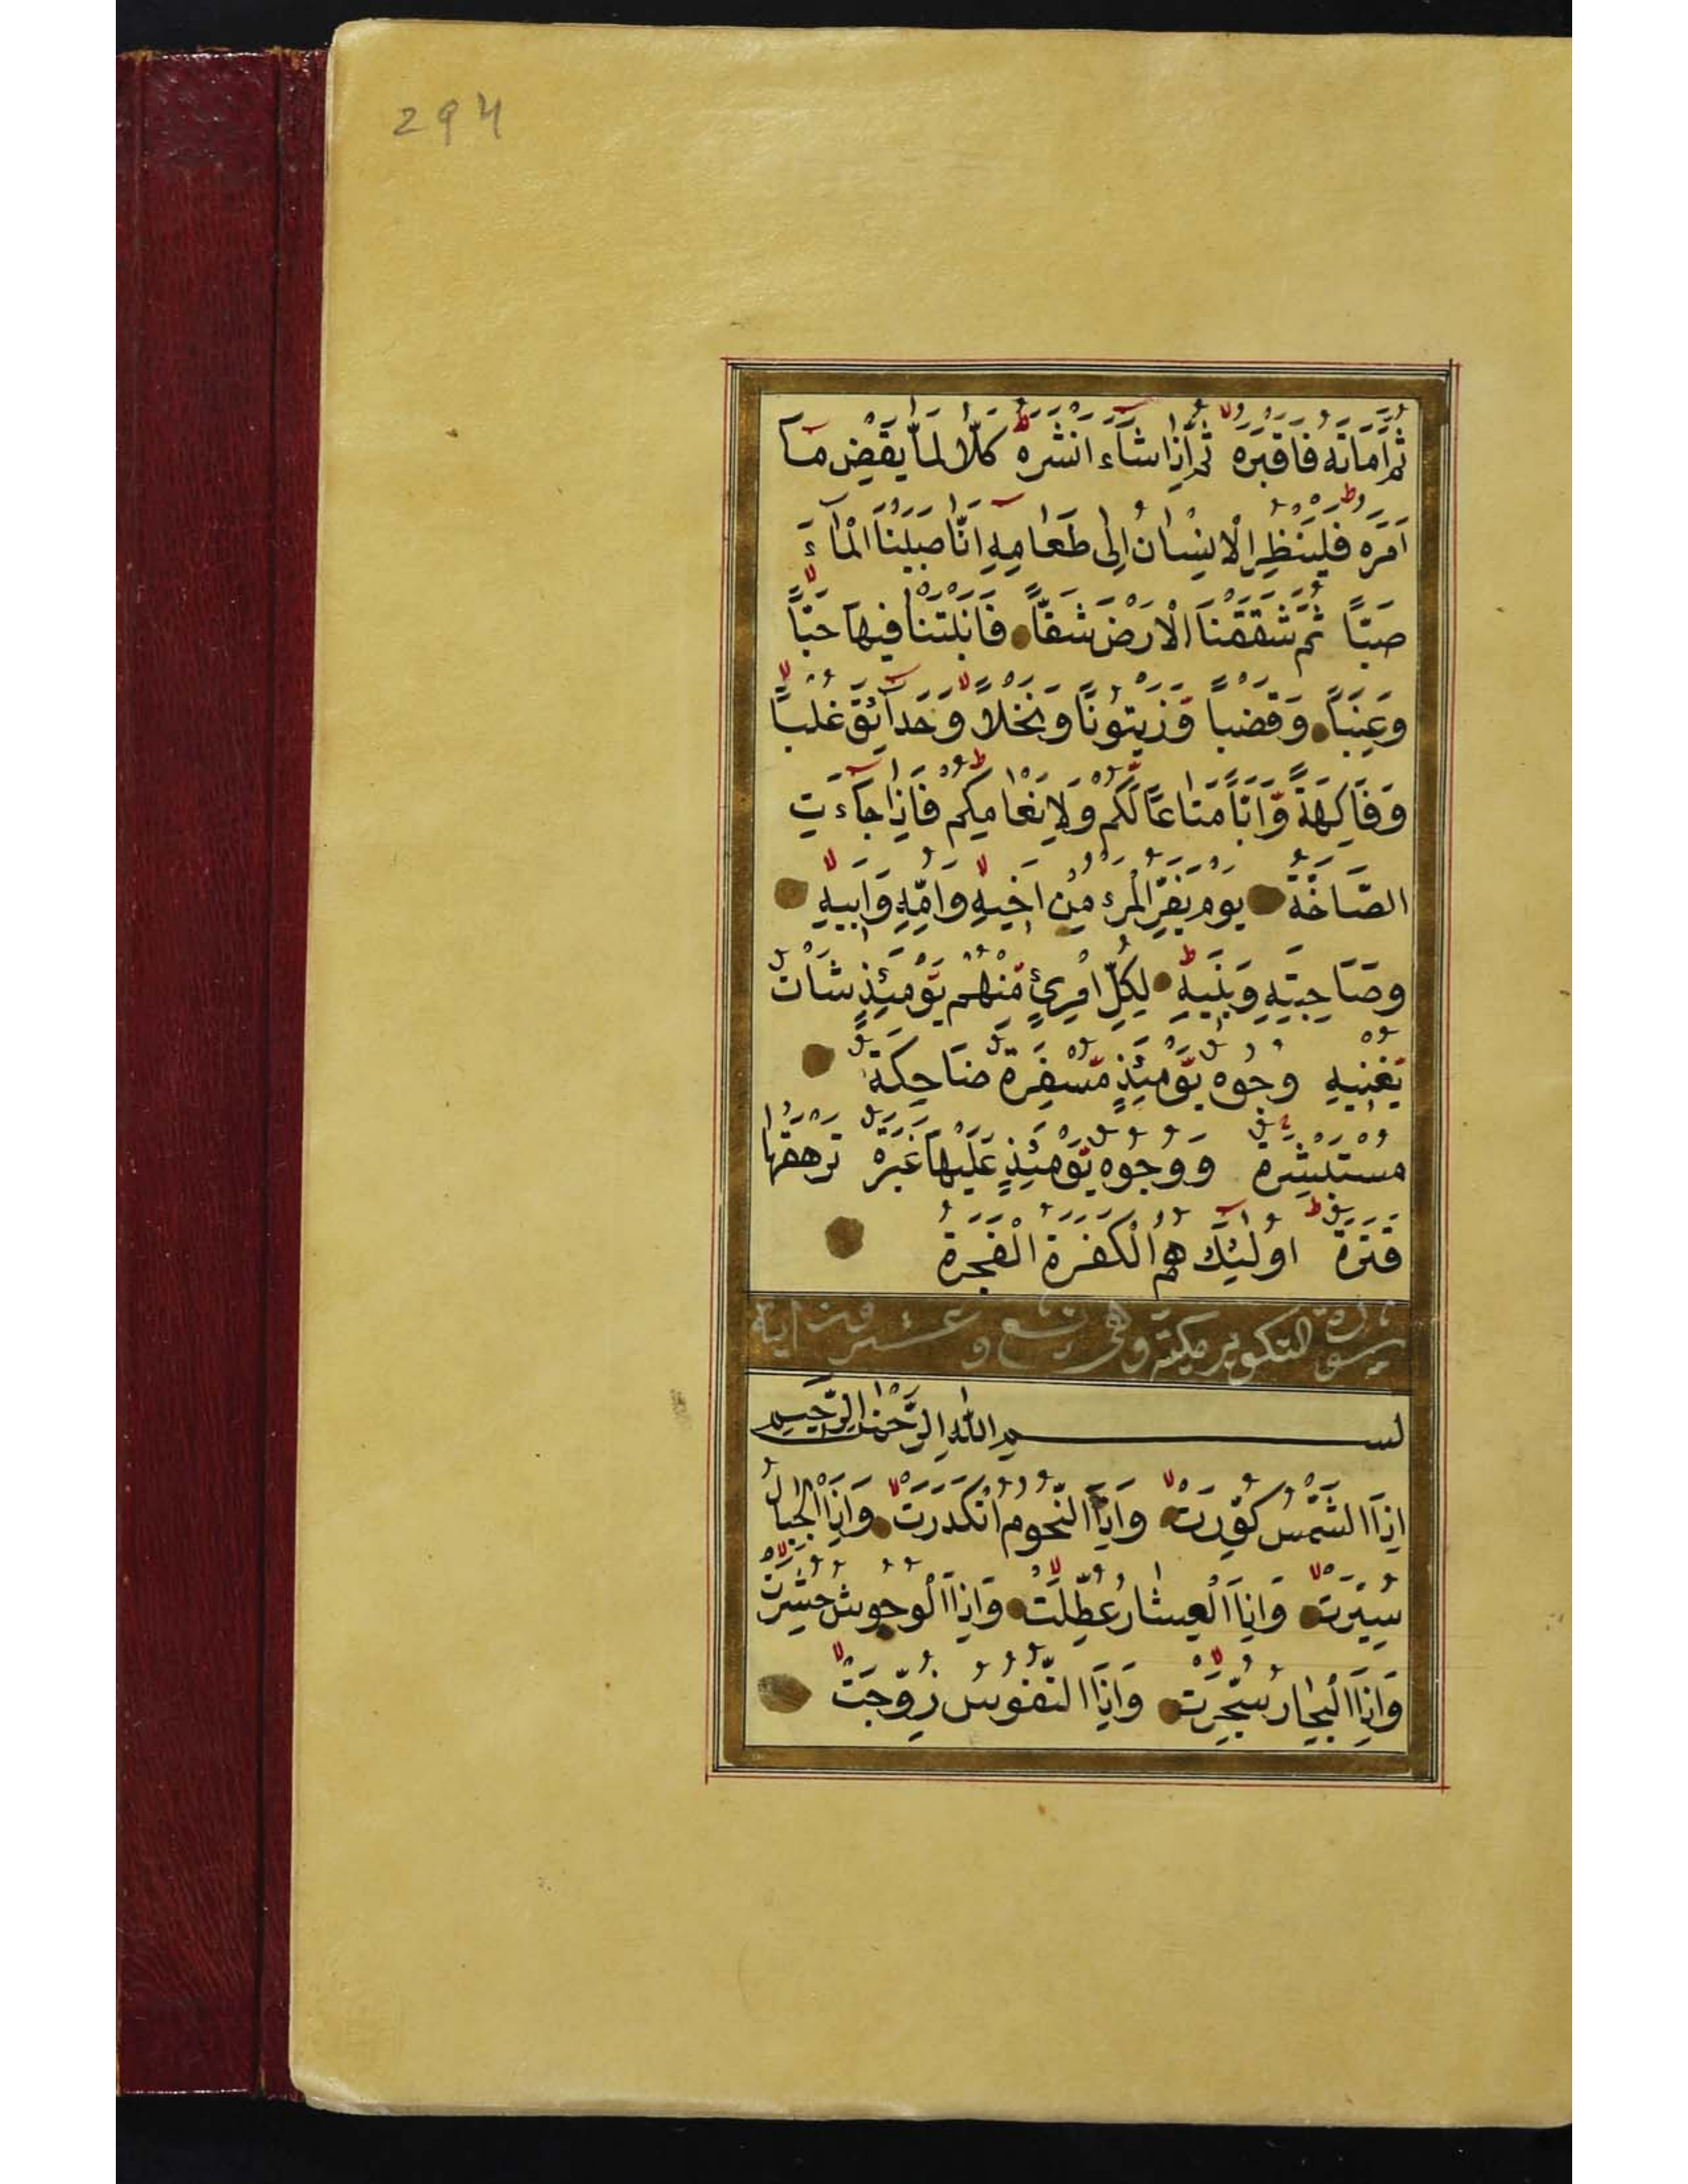 294
ثُمَّ اَمَاتَهُ فَاَقْبَرَهُ ثُمَّ اِذَا شَآءَ اَنْشَرَهُ كَلَّا لَمَّا يَقْضِ مَآ
اَمَرَهُ فَلْيَنْظُرِ الْاِنْسَانُ اِلٰى طَعَامِهٖ اَنَّا صَبَبْنَا الْمَآءَ
صَبًّا ثُمَّ شَقَقْنَا الْاَرْضَ شَقًّا فَاَنْبَتْنَا فِيهَا حَبًّا
وَعِنَبًا وَقَضْبًا وَّزَيْتُونًا وَنَخْلًا وَحَدَآئِقَ غُلْبًا
وَفَاكِهَةً وَّاَبًّا مَتَاعًا لَّكُمْ وَلِاَنْعَامِكُمْ فَاِذَا جَآءَتِ
الصَّاخَّةُ يَوْمَ يَفِرُّ الْمَرْءُ مِنْ اَخِيهِ وَاُمِّهٖ وَاَبِيهِ
وَصَاحِبَتِهٖ وَبَنِيهِ لِكُلِّ امْرِئٍ مِّنْهُمْ يَوْمَئِذٍ شَاْنٌ
يُّغْنِيهِ وُجُوهٌ يَّوْمَئِذٍ مُّسْفِرَةٌ ضَاحِكَةٌ
مُسْتَبْشِرَةٌ وَوُجُوهٌ يَّوْمَئِذٍ عَلَيْهَا غَبَرَةٌ تَرْهَقُهَا
قَتَرَةٌ اُولٰٓئِكَ هُمُ الْكَفَرَةُ الْفَجَرَةُ
سورة التكوير مكية وهى تسع وعشرون اية
بسم اللّٰهِ الرَّحْمٰنِ الرَّحِيمِ
اِذَا الشَّمْسُ كُوِّرَتْ وَاِذَا النُّجُومُ انْكَدَرَتْ وَاِذَا الْجِبَالُ
سُيِّرَتْ وَاِذَا الْعِشَارُ عُطِّلَتْ وَاِذَا الْوُحُوشُ حُشِرَتْ
وَاِذَا الْبِحَارُ سُجِّرَتْ وَاِذَا النُّفُوسُ زُوِّجَتْ